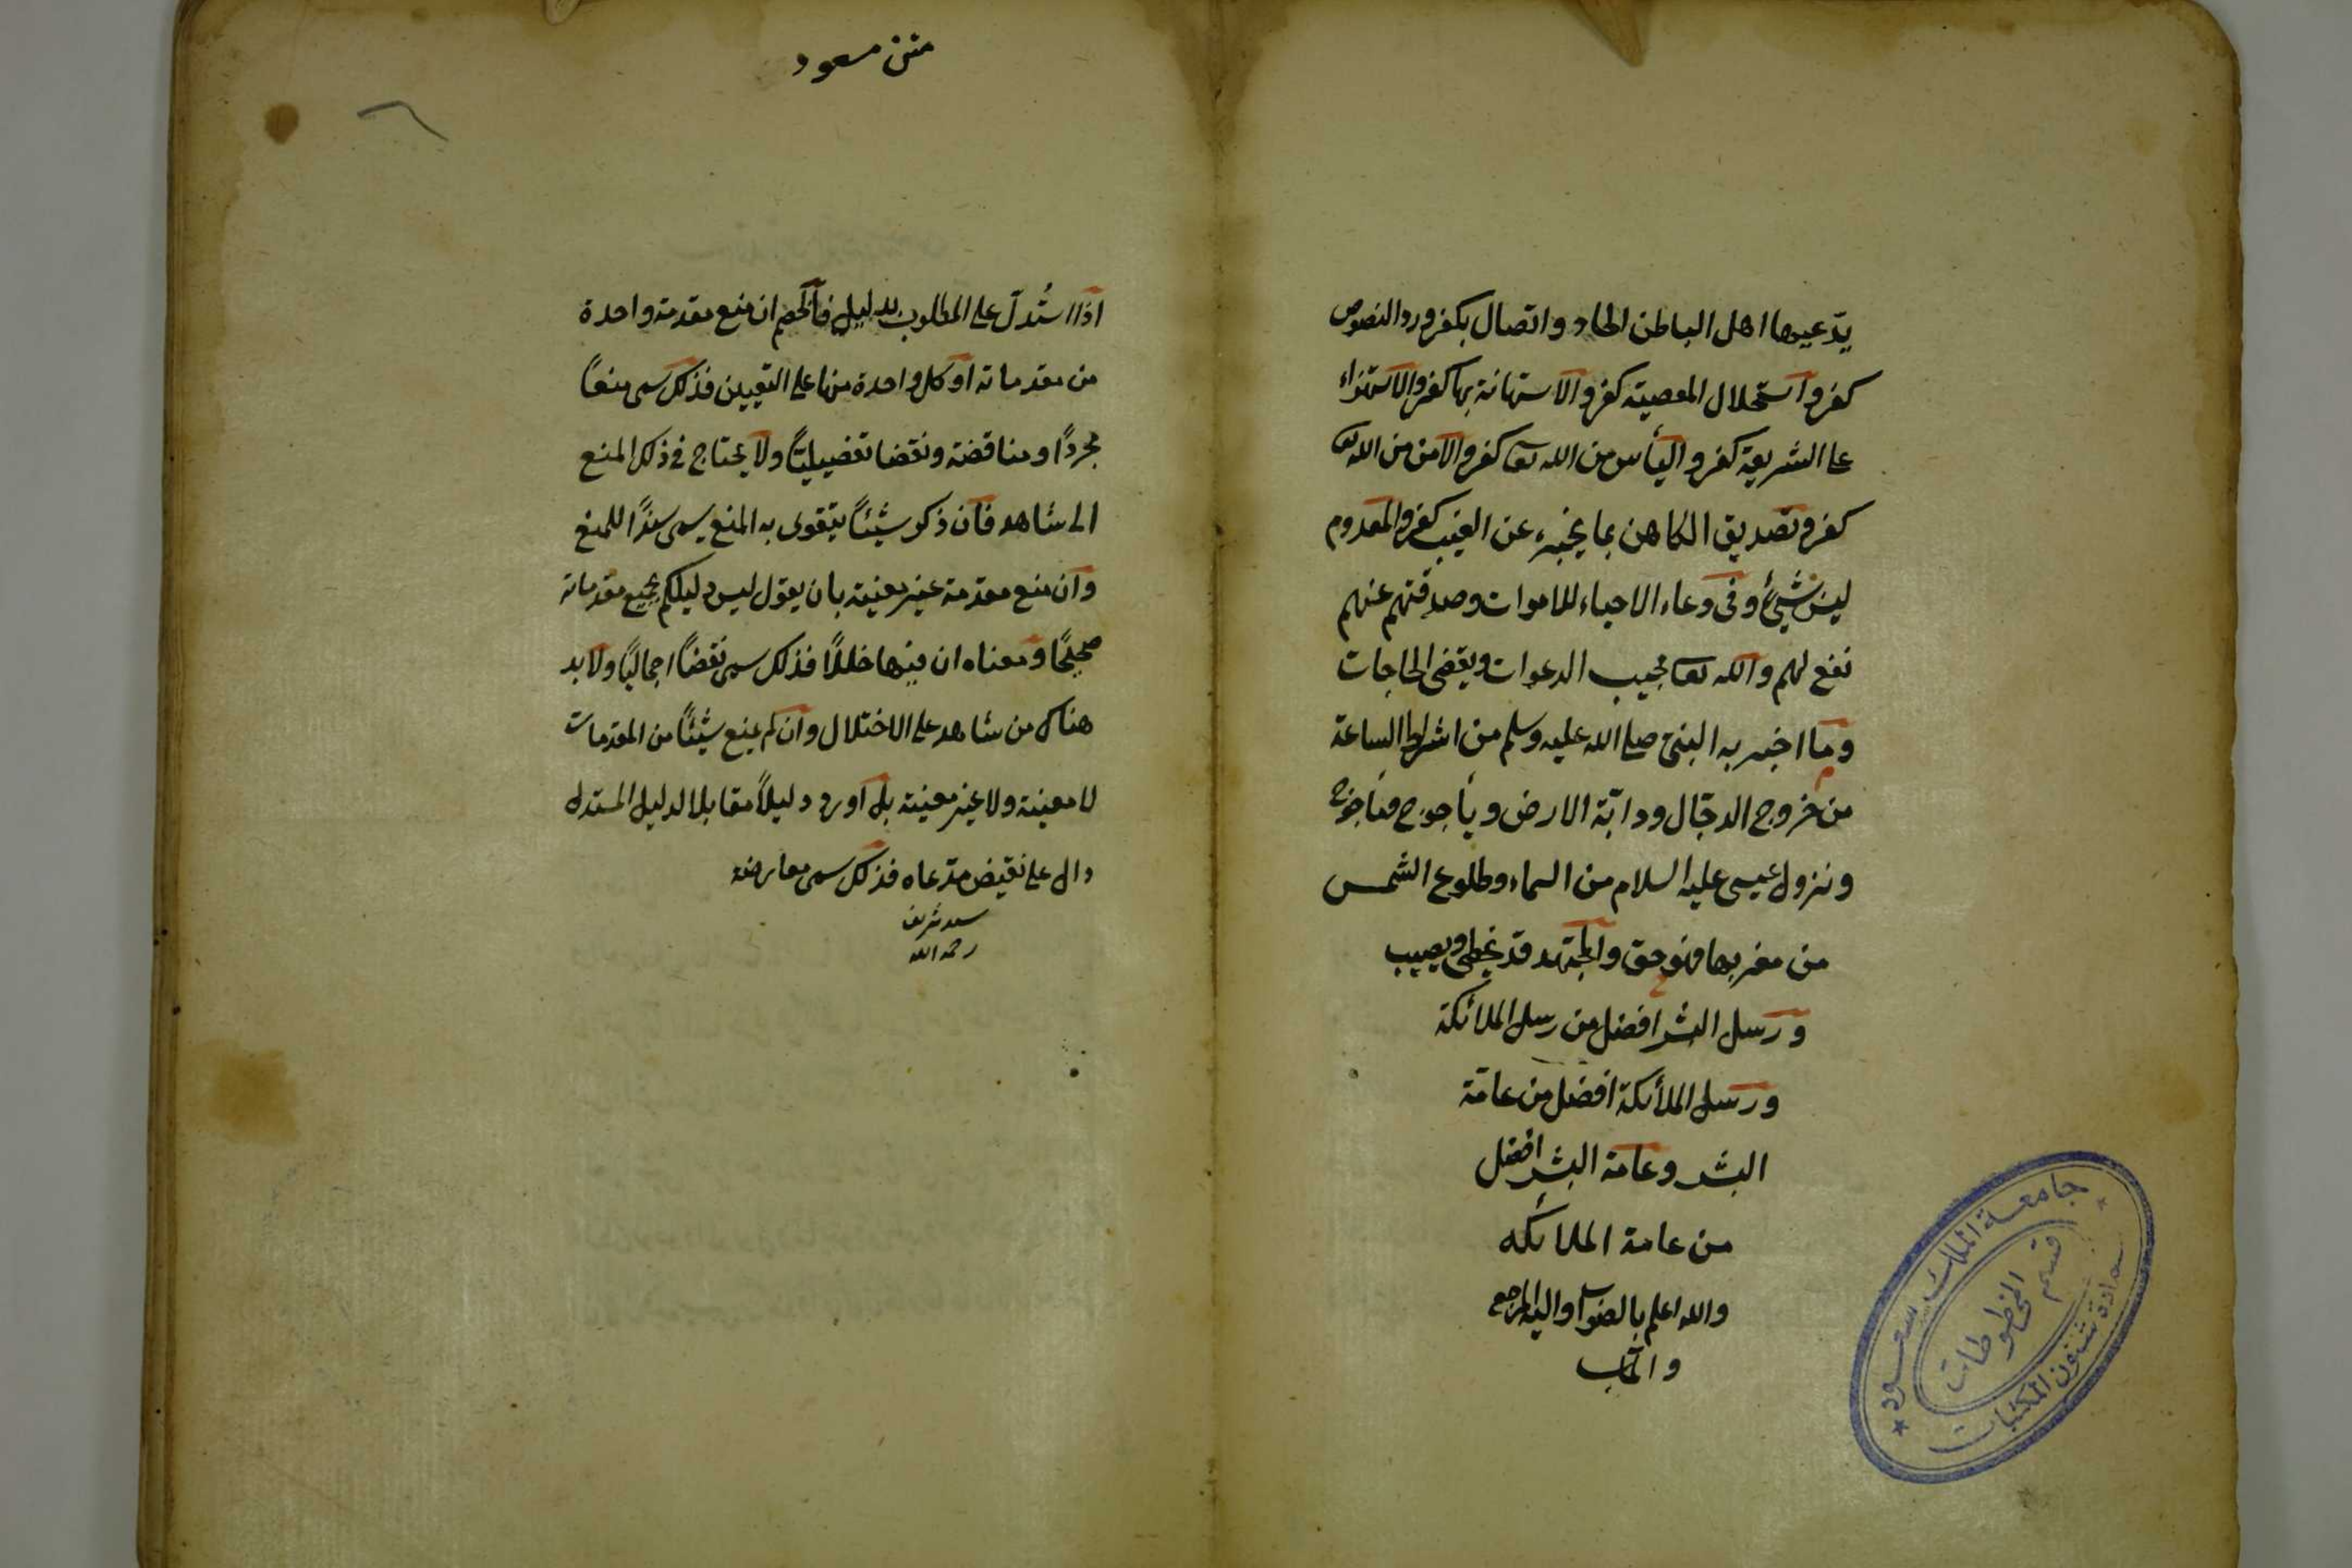 يدّعيها اهل الباطن الحاد واتصال بكفر ورد النصوص
كفر واستحلال المعصية كفر والاستهانة بها كفر والاستهزاء
على الشريعة كفر واليأس من الله تعا كفر والامن من الله تعا
كفر وتصديق الكاهن بما يخبره عن الغيب كفر والمعدوم
ليس بشيئ وفى دعاء الاحياء للاموات وصدقتهم عنهم
نفع لهم والله تعا مجيب الدعوات ويقضى الحاجات
وما اخبر به النبى صلى الله عليه وسلم من اشراط الساعة
من خروج الدجّال ودابّة الارض ويأجوج ومأجوج
ونزول عيسى عليه السلام من السماء وطلوع الشمس
من مغربها فهو حق والمجتهد قد يخطى ويصيب
ورسل البشر افضل من رسل الملائكة
ورسل الملائكة افضل من عامّة
البشر وعامة البشر افضل
من عامة الملائكه
والله اعلم بالصواب واليه المرجع
والمآب
جامعة الملك سعود
قسم المخطوطات
عمادة شئون المكتبات
متن مسعود
اذا استُدلّ على المطلوب بدليل فالخصم ان منع مقدمة واحدة
من مقدماته او كل واحدة منها على التعيين فذلك سمى منعًا
مجردًا ومناقضة ونقضا تفصيليًّا ولا يحتاج فى ذلك المنع
الى شاهد فان ذكر شيئًا يتقوى به المنع يسمى سندًا للمنع
وان منع مقدمة غير معينة بان يقول ليس دليلكم بجميع مقدماته
صحيحًا ومعناه ان فيها خللًا فذلك سمى نقضًا اجماليًا ولا بد
هناك من شاهد على الاختلال وان لم يمنع شيئًا من المقدمات
لا معينة ولا غير معينة بل اورد دليلًا مقابلا لدليل المستدل
دال على نقيض مدّعاه فذلك سمى معارضة
شريف
رحمه الله